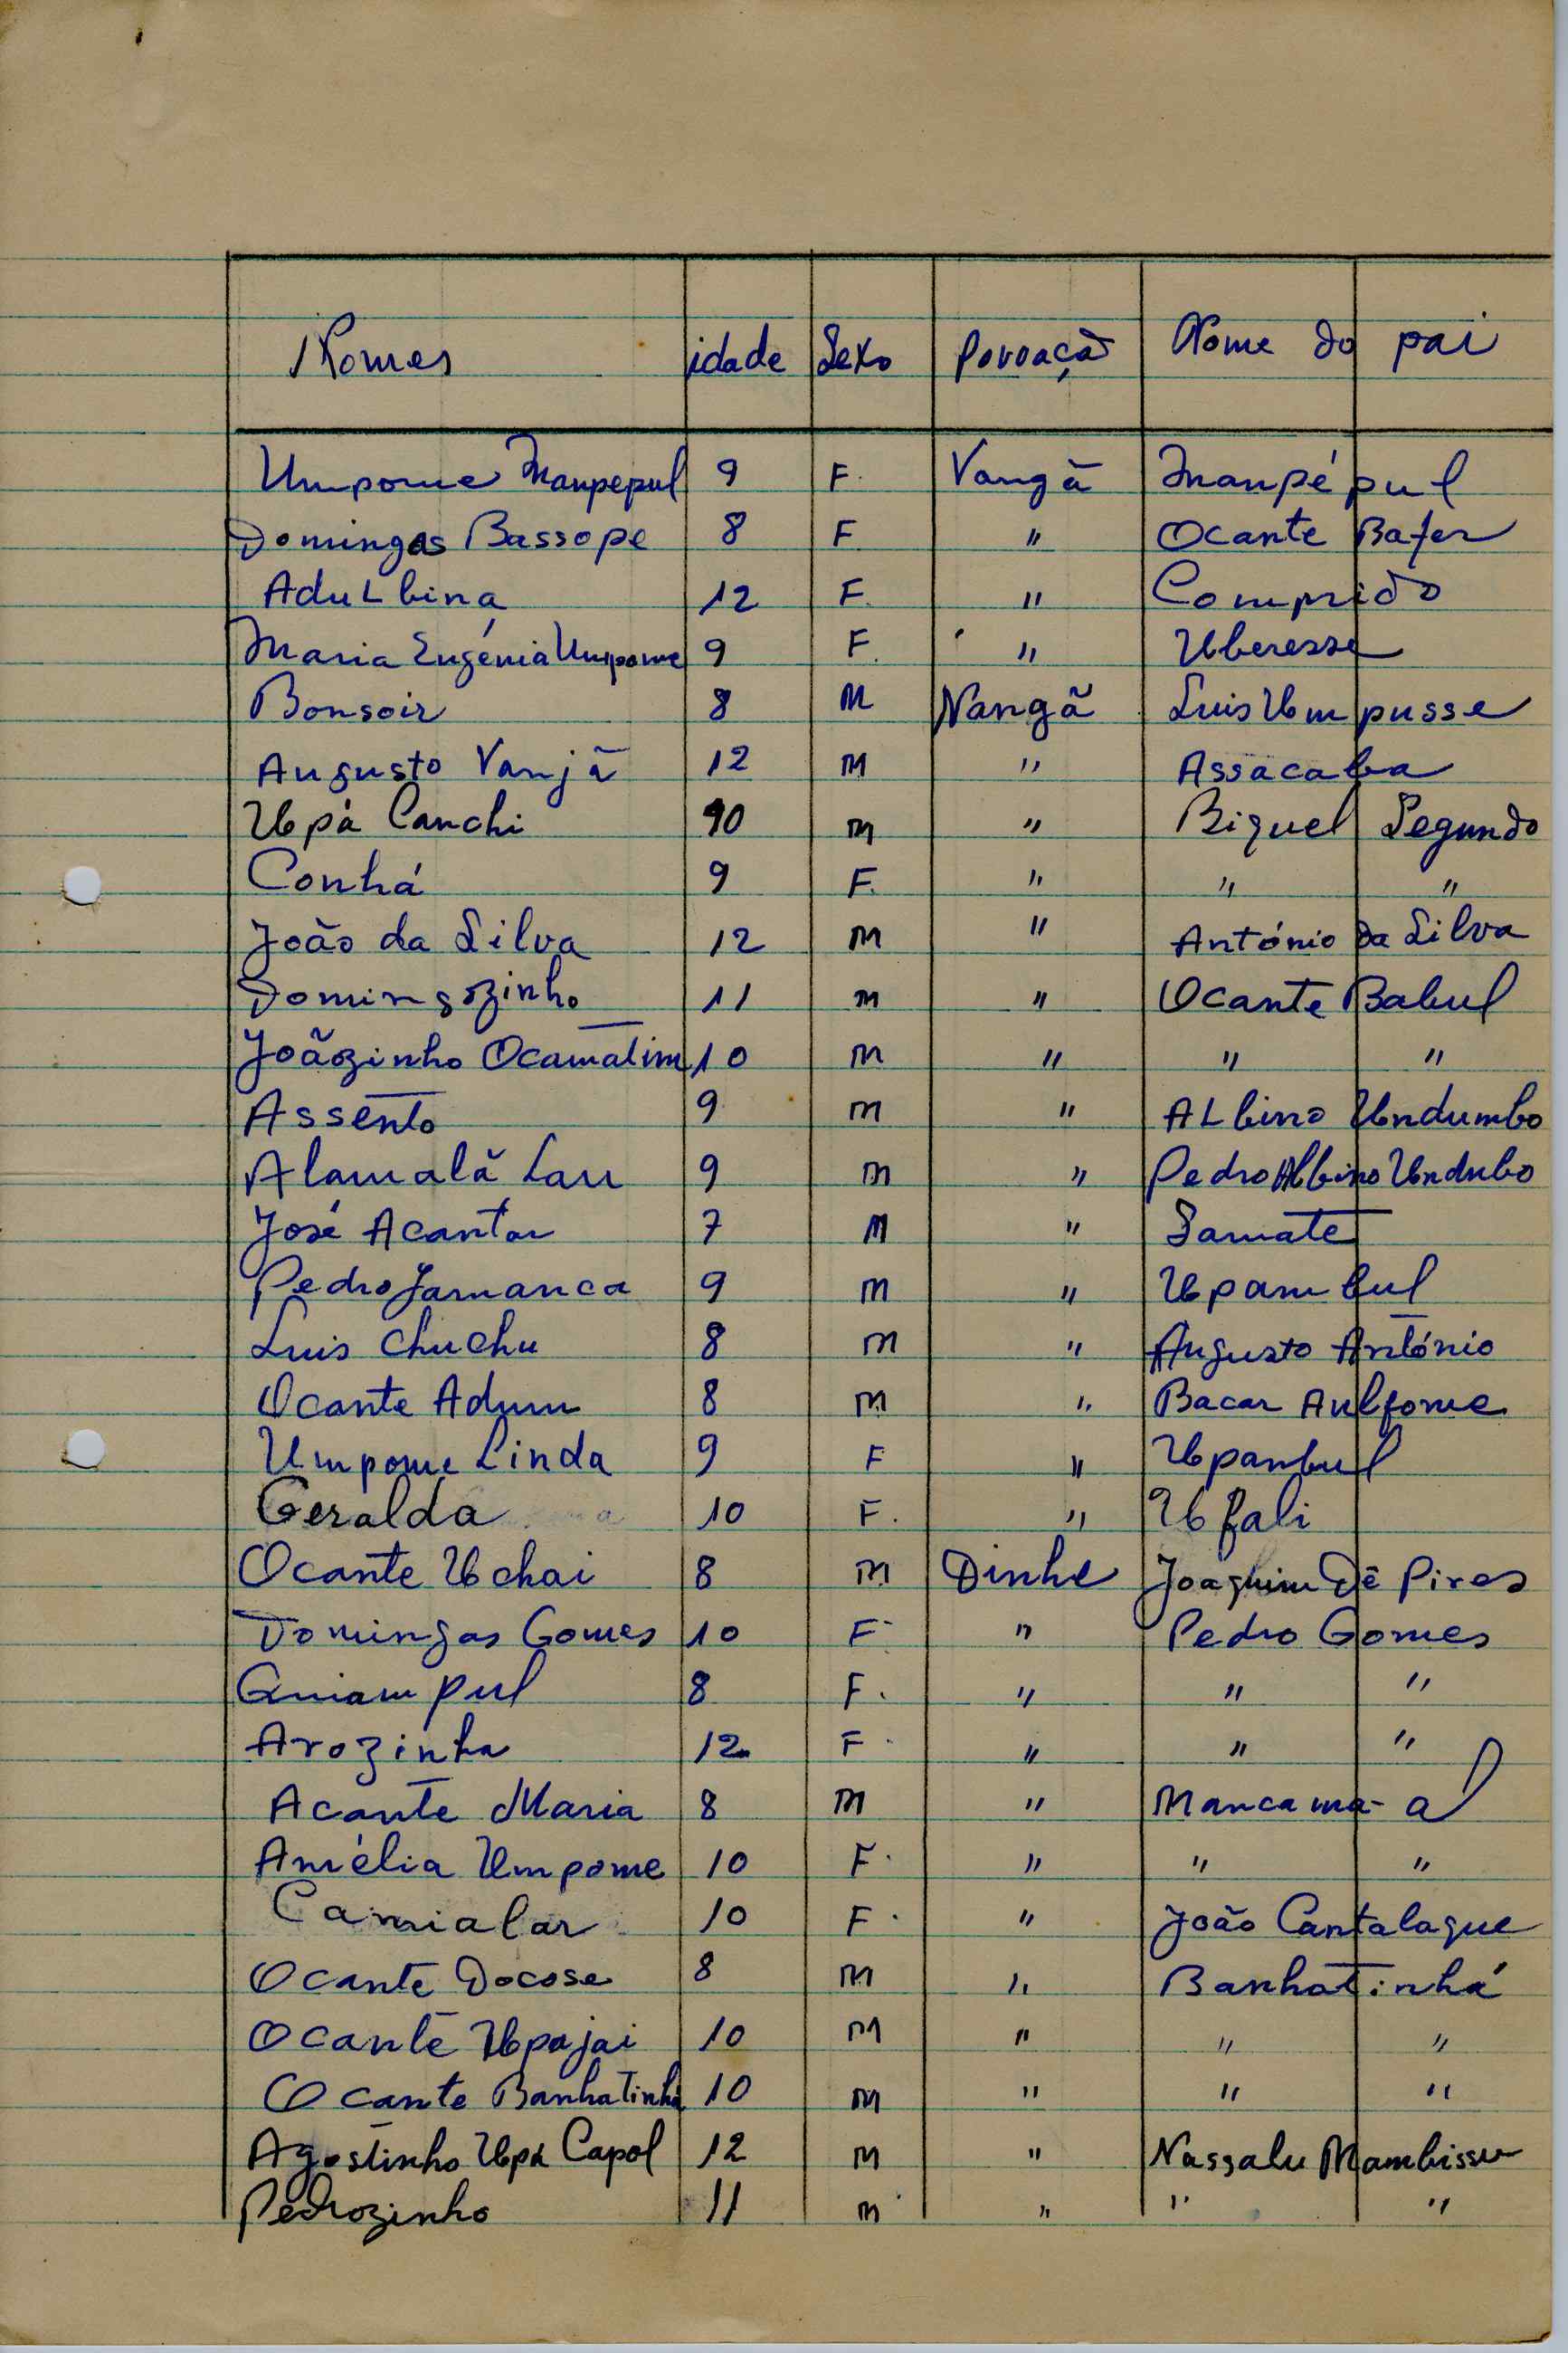 Nomes idade Sexo Povoação Nome do pai
Umpome Manpepul 9 F. Vangã Manpépul
Domingas Bassope 8 F " Ocante Bafer
Adulbina 12 F. " Comprido
Maria Eugénia Umpome 9 F. " Uberesse
Bonsoir 8 M Nangã Luis Umpusse
Augusto Vanjã 12 M " Assacaba
Upá Canchi 10 m " Biquel Segundo
Conhá 9 F. " " "
João da Silva 12 M " António da Silva
Domingozinho 11 m " Ocante Babul
Joãozinho Ocamatim 10 m " " "
Assento 9 m " Albino Undumbo
Alamalã Lau 9 m " Pedro Albino Undubo
José Acantar 7 M " Samate
Pedro Jamanca 9 m " Upambul
Luis Chuchu 8 m " Augusto António
Ocante Adum 8 m " Bacar Aulfome
Umpome Linda 9 F " Upanbul
Geralda 10 F. " Ufali
Ocante Uchai 8 m Dinhe Joaquim Dê Pires
Domingas Gomes 10 F " Pedro Gomes
Quiampul 8 F. " " "
Arozinha 12 F " " "
Acante Maria 8 M " Mancama-al
Amélia Umpome 10 F. " " "
Camialar 10 F. " João Cantalaque
Ocante Docose 8 M " Banhatinhá
Ocante Upajai 10 M " " "
Ocante Banhatinhá 10 m " " "
Agostinho Upá Capol 12 m " Nassalu Mambissu
Pedrozinho 11 m " " "